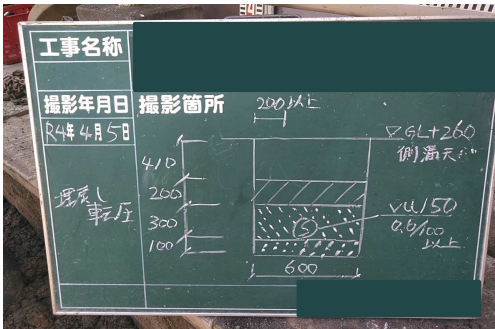 工事名称
撮影年月日
撮影箇所
R4年4月5日
200以上
▽GL+260
側溝天ば
410
200
300
100
埋戻し
転圧
S
VU150
0.6/100
以上
600